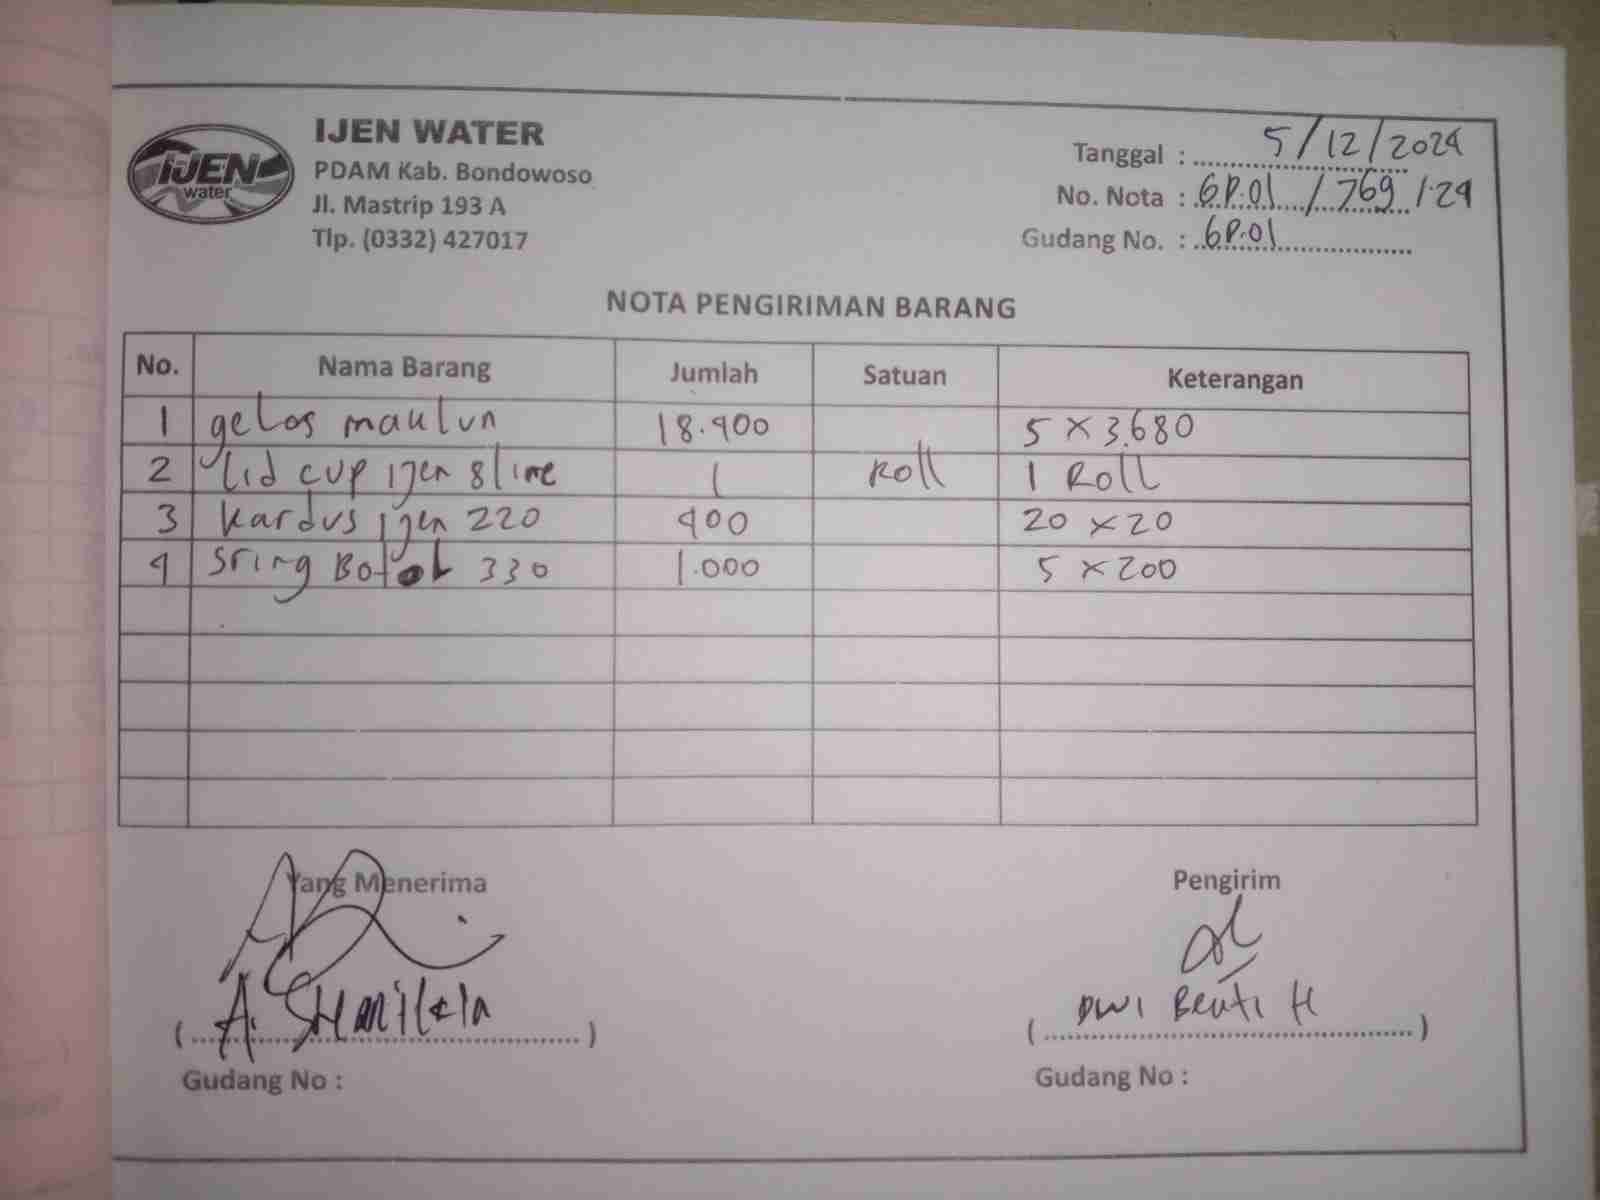 IJEN WATER
IJEN
water
PDAM Kab. Bondowoso
Jl. Mastrip 193 A
Tlp. (0332) 427017
Tanggal : 5/12/2024
No. Nota : GP.01 / 769 /.24
Gudang No. : GP.01
NOTA PENGIRIMAN BARANG
No. Nama Barang Jumlah Satuan Keterangan
1 gelas maulun 18.400 5 x 3.680
2 Lid cup ijen 8 line 1 Roll 1 Roll
3 Kardus ijen 220 400 20 x 20
4 Sring Botol 330 1.000 5 x 200
Yang Menerima Pengirim
( A. ) ( DWI H )
Gudang No : Gudang No :